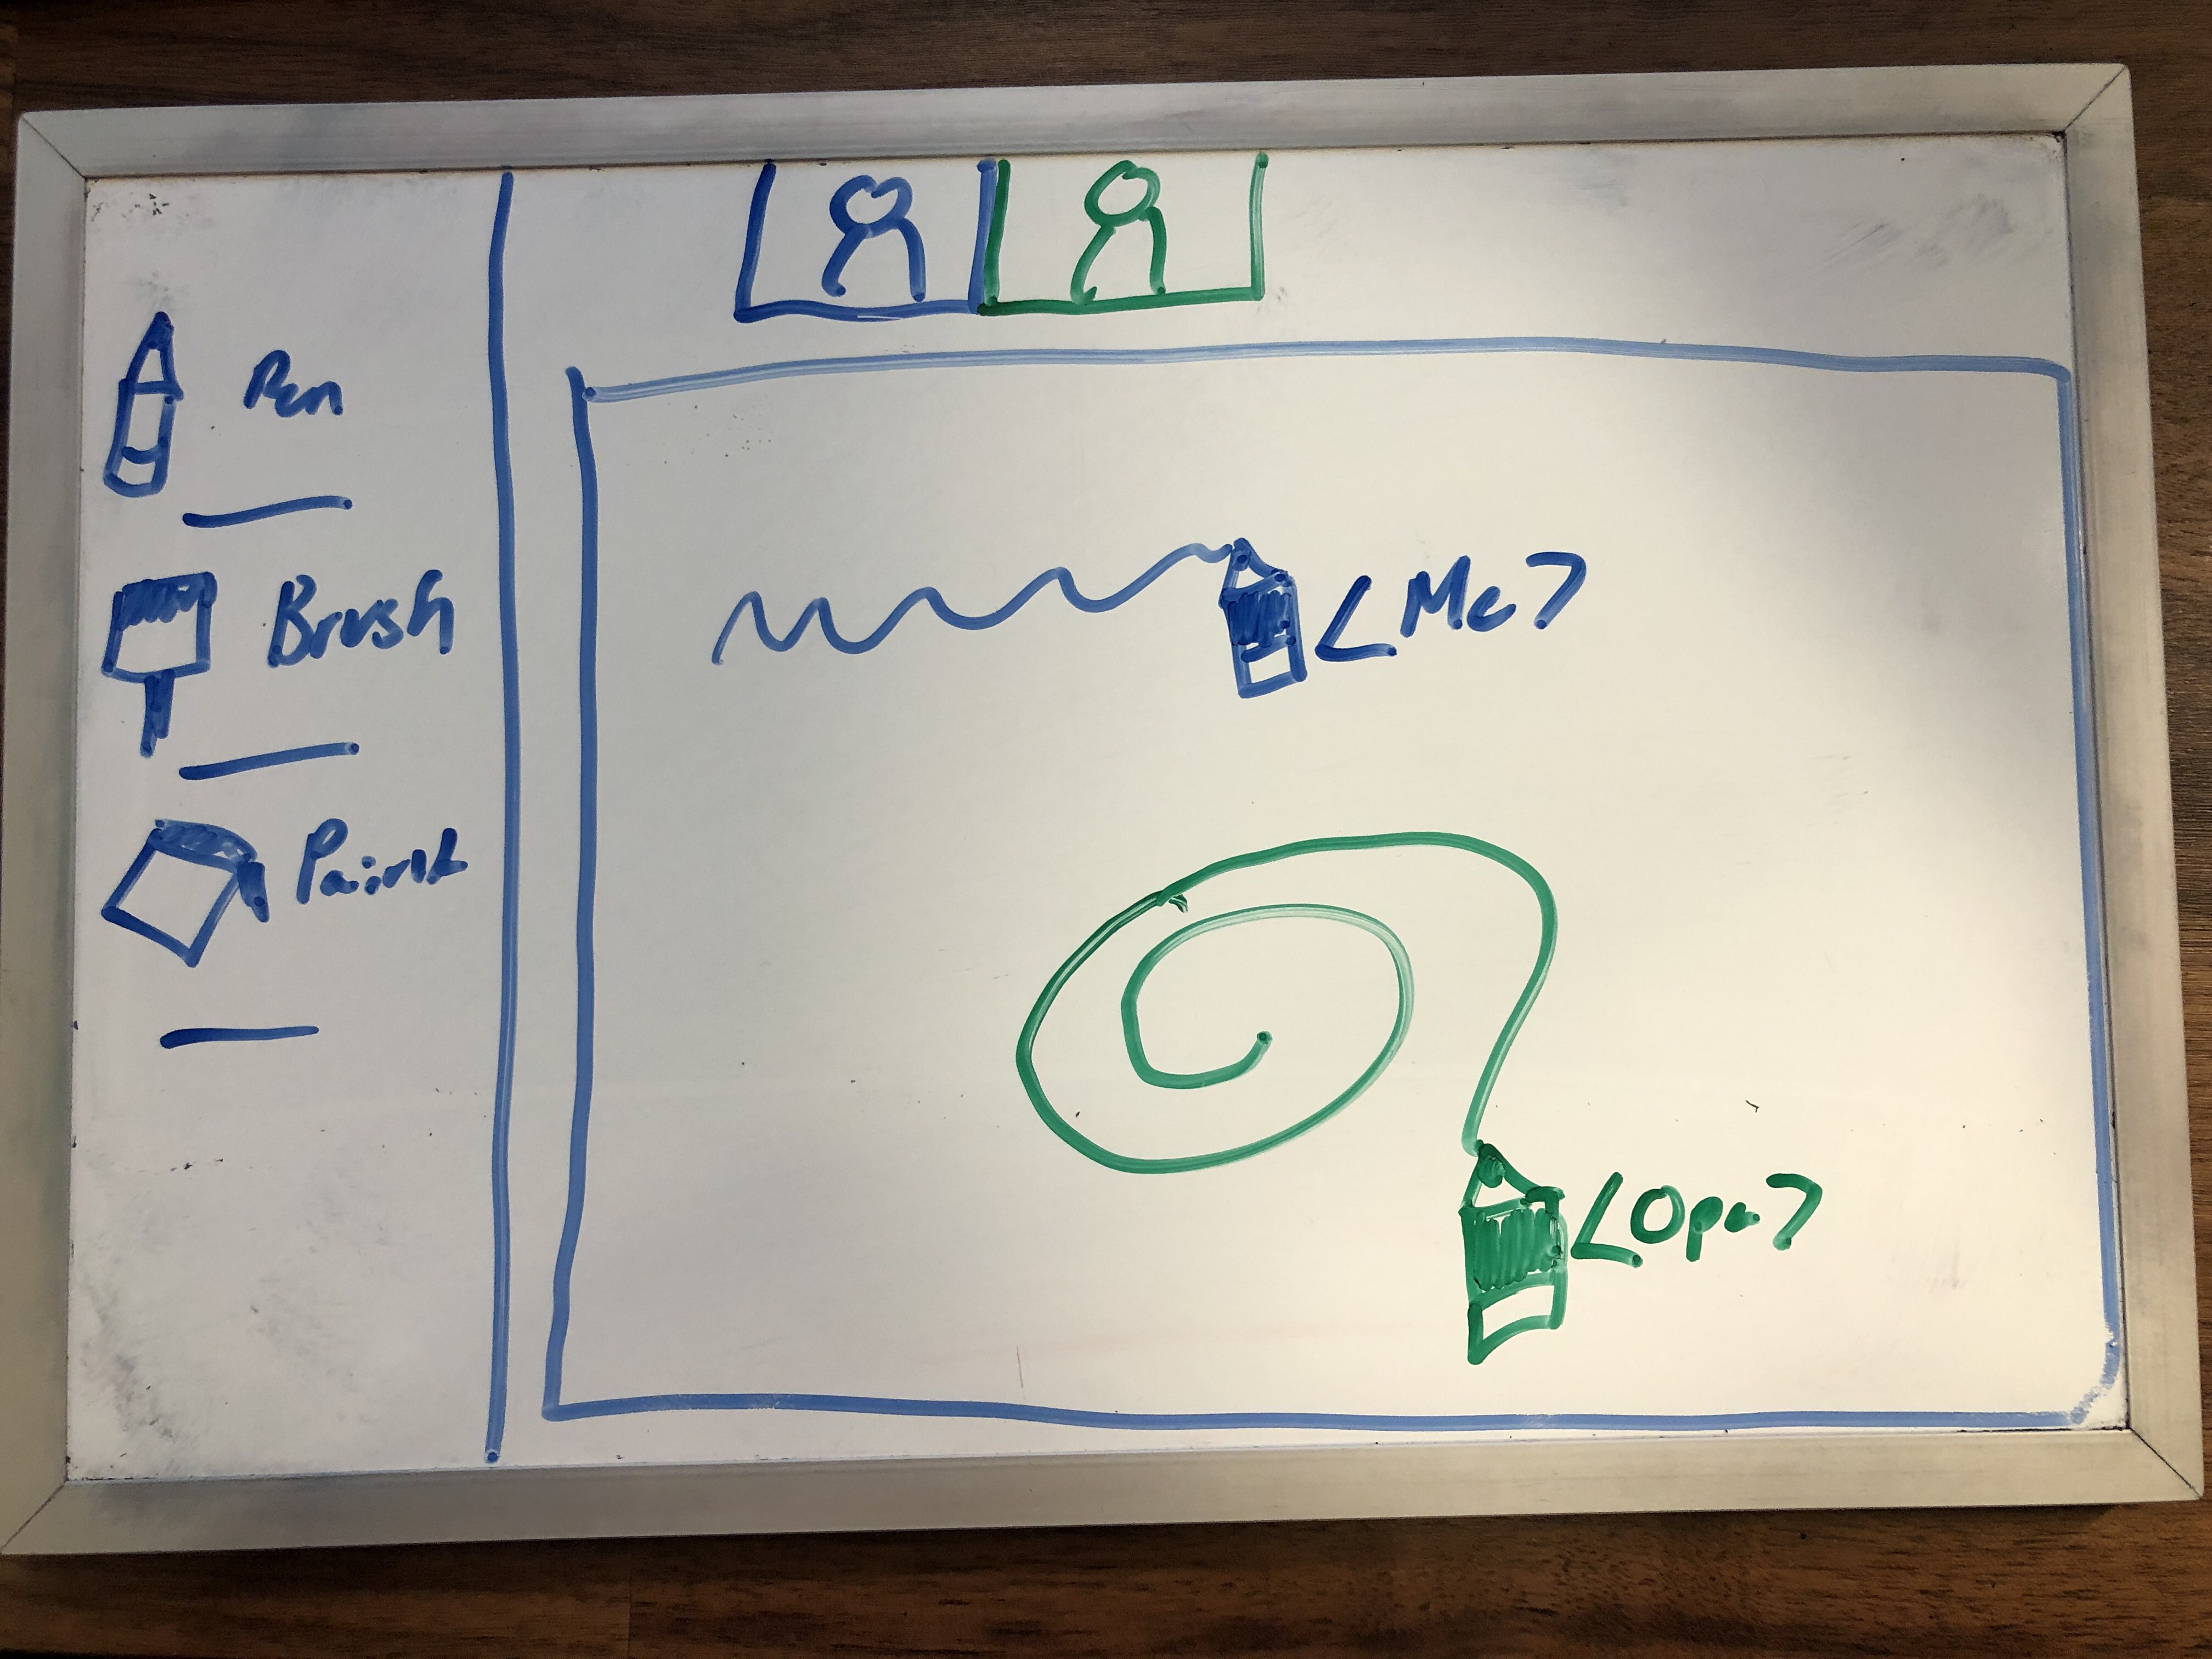 Pen
Brush
Paint
<Me>
<Opa>